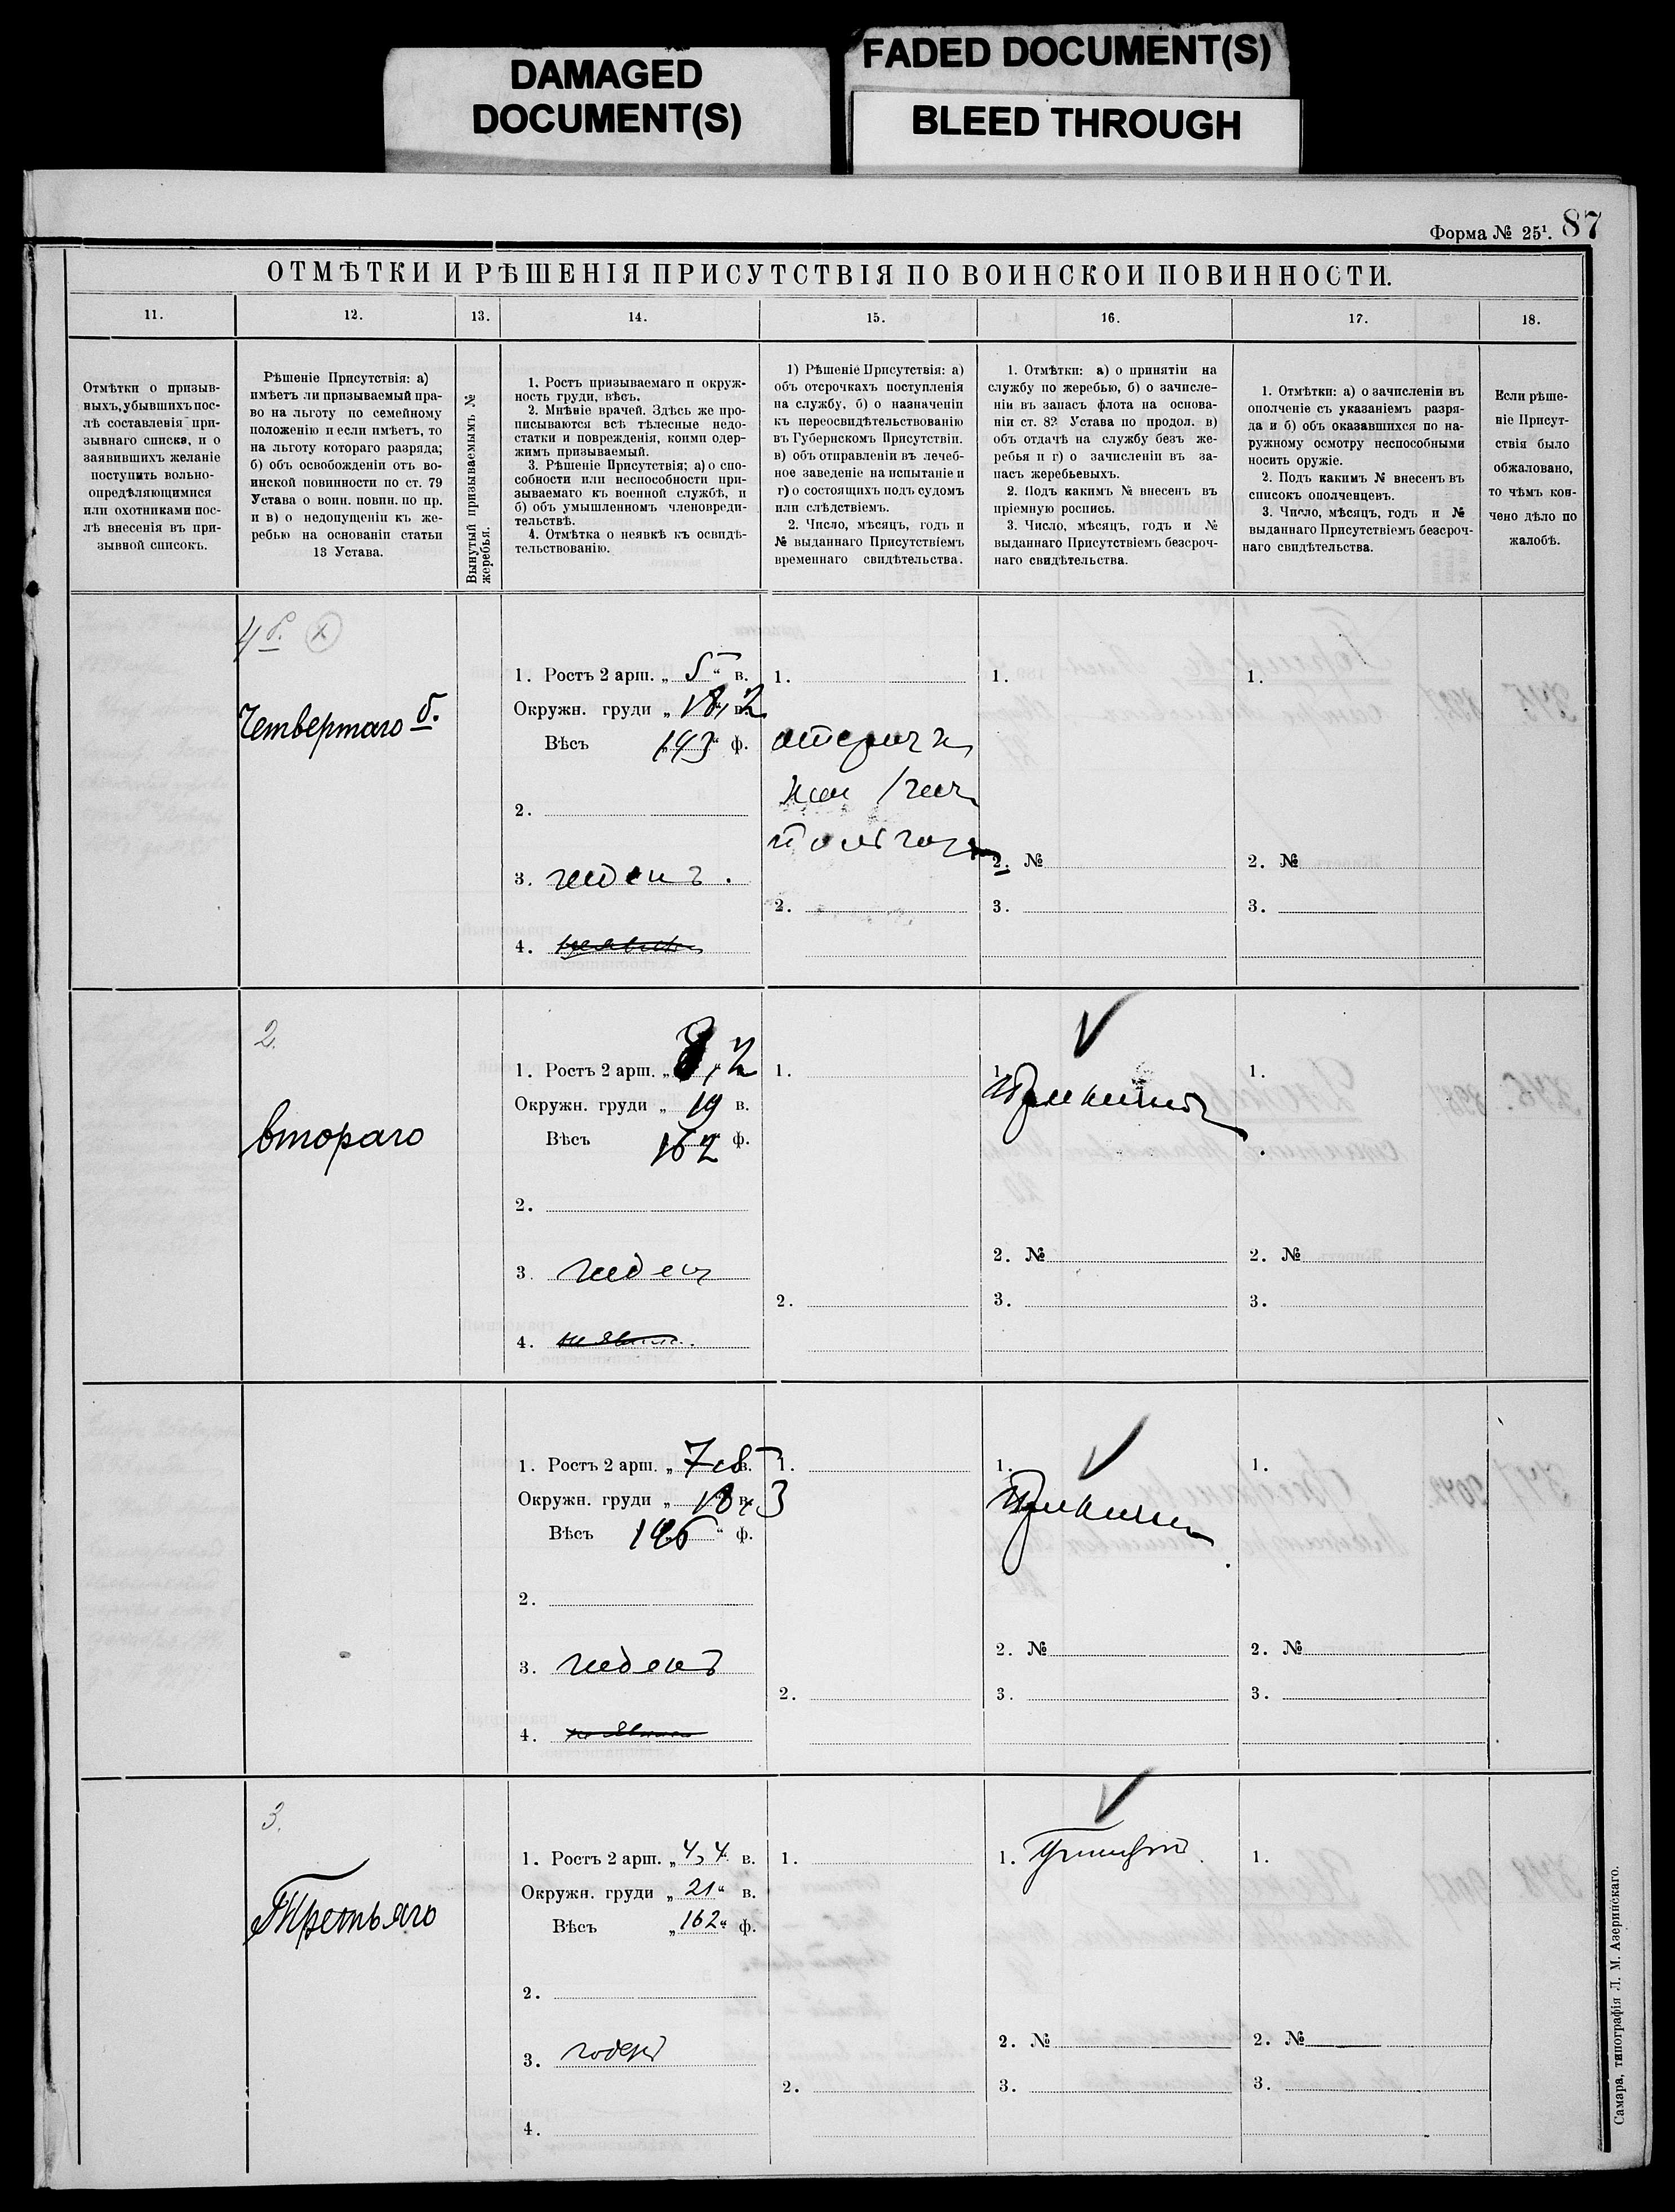 DAMAGED
DOCUMENT(S)
FADED DOCUMENT(S)
BLEED THROUGH
Форма № 25¹. 87
ОТМѢТКИ И РѢШЕНІЯ ПРИСУТСТВІЯ ПО ВОИНСКОЙ ПОВИННОСТИ.
11. 12. 13. 14. 15. 16. 17. 18.
Отмѣтки о призыв-
ныхъ, убывшихъ пос-
лѣ составленія при-
зывнаго списка, и о
заявившихъ желаніе
поступить вольно-
опредѣляющимися
или охотниками пос-
лѣ внесенія въ при-
зывной списокъ.
Рѣшеніе Присутствія: а)
имѣетъ ли призываемый пра-
во на льготу по семейному
положенію и если имѣетъ, то
на льготу котораго разряда;
б) объ освобожденіи отъ во-
инской повинности по ст. 79
Устава о воин. повин. по пр.
и в) о недопущеніи къ же-
ребью на основаніи статьи
13 Устава.
Вынутый призываемымъ №
жеребья.
1. Ростъ призываемаго и окруж-
ность груди, вѣсъ.
2. Мнѣніе врачей. Здѣсь же про-
писываются всѣ тѣлесные недо-
статки и поврежденія, коими одер-
жимъ призываемый.
3. Рѣшеніе Присутствія; а) о спо-
собности или неспособности при-
зываемаго къ военной службѣ, и
б) объ умышленномъ членовреди-
тельствѣ.
4. Отмѣтка о неявкѣ къ освидѣ-
тельствованію.
1) Рѣшеніе Присутствія: а)
объ отсрочкахъ поступленія
на службу, б) о назначеніи
къ переосвидѣтельствованію
въ Губернскомъ Присутствіи.
в) объ отправленіи въ лечеб-
ное заведеніе на испытаніе и
г) о состоящихъ подъ судомъ
или слѣдствіемъ.
2. Число, мѣсяцъ, годъ и
№ выданнаго Присутствіемъ
временнаго свидѣтельства.
1. Отмѣтки: а) о принятіи на
службу по жеребью, б) о зачисле-
ніи въ запасъ флота на основа-
ніи ст. 82 Устава по продол. в)
объ отдачѣ на службу безъ же-
ребья и г) о зачисленіи въ за-
пасъ жеребьевыхъ.
2. Подъ какимъ № внесенъ въ
пріемную роспись.
3. Число, мѣсяцъ, годъ и №
выданнаго Присутствіемъ безсроч-
наго свидѣтельства.
1. Отмѣтки: а) о зачисленіи въ
ополченіе съ указаніемъ разря-
да и б) объ оказавшихся по на-
ружному осмотру неспособными
носить оружіе.
2. Подъ какимъ № внесенъ въ
списокъ ополченцевъ.
3. Число, мѣсяцъ, годъ и №
выданнаго Присутствіемъ безсроч-
наго свидѣтельства.
Если рѣше-
ніе Присут-
ствія было
обжаловано,
то чѣмъ кон-
чено дѣло по
жалобѣ.
4 б.
Четвертаго б.
1. Ростъ 2 арш. „ 5 “ в.
Окружн. груди „ 18, 2 в.
Вѣсъ 193 ф.
2.
3. годенъ.
4.
1.
2.
1.
2. №
3.
1.
2. №
3.
2.
втораго
1. Ростъ 2 арш. „ 8, 2
Окружн. груди „ 19 в.
Вѣсъ 162 ф.
2.
3. годенъ
4.
1.
2.
1. Принятъ
2. №
3.
1.
2. №
3.
1. Ростъ 2 арш. „ 7, 5 в.
Окружн. груди „ 18, 3 в.
Вѣсъ 196 “ ф.
2.
3. годенъ
4.
1.
2.
1. Принятъ
2. №
3.
1.
2. №
3.
3.
Третьяго
1. Ростъ 2 арш. „ 4, 4 в.
Окружн. груди „ 21 “ в.
Вѣсъ „ 162 “ ф.
2.
3. годенъ
4.
1.
2.
1.
2. №
3.
1.
2. №
3.
Самара, типографія Л. М. Азеринскаго.